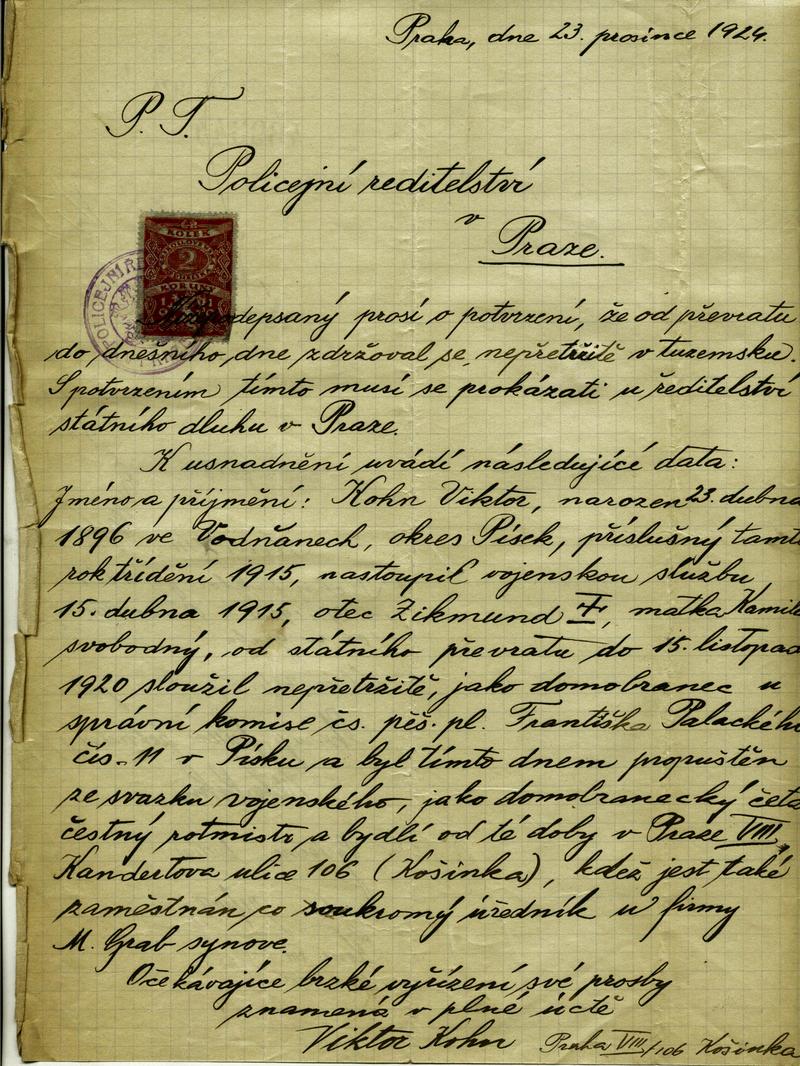 Praha, dne 23. prosince 1924.
P. T.
Policejní reditelství
v
Praze.
KOLEK
2
KORUNY
POLICEJNÍ ŘE
Nížepodepsaný prosí o potvrzení, že od převratu
do dnešního dne zdržoval se nepřetržitě v tuzemsku.
S potvrzením tímto musí se prokázati u ředitelství
státního dluhu v Praze.
K usnadnění uvádí následující data:
Jméno a příjmění: Kohn Viktor, narozen 23. dubna
1896 ve Vodňanech, okres Písek, příslušný tamt
rok třídění 1915, nastoupil vojenskou službu
15. dubna 1915, otec Zikmund †, matka Kamila
svobodný, od státního převratu do 15. listopad
1920 sloužil nepřetržitě, jako domobranec u
správní komise čs. pěš. pl. Františka Palackého
čís. 11 v Písku a byl tímto dnem propuštěn
ze svazku vojenského, jako domobranecký četa
čestný rotmistr a bydlí od té doby v Praze VIII,
Kandertova ulice 106 (Košinka), kdež jest také
zaměstnán co soukromý úředník u firmy
M. Grab synove.
Očekávajíce brzké vyřízení své prosby
znamená v plné úctě
Viktor Kohn Praha VIII/106 Košinka